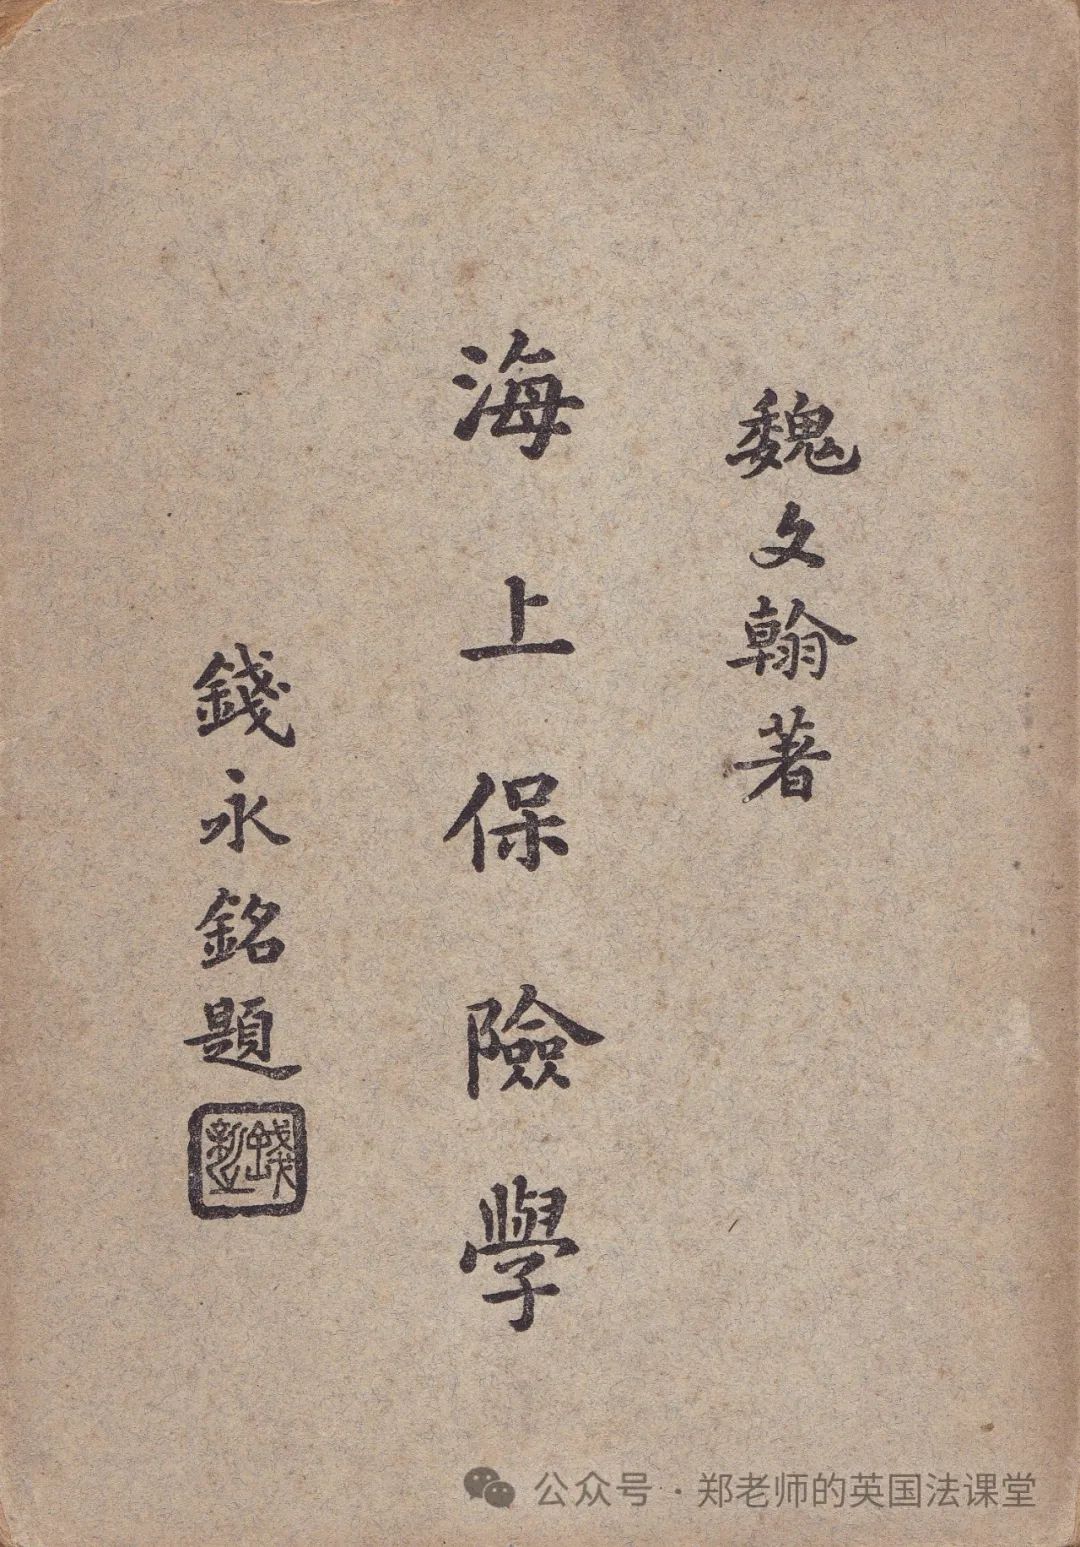 魏文翰著
海上保險學
錢永銘題
公众号·郑老师的英国法课堂